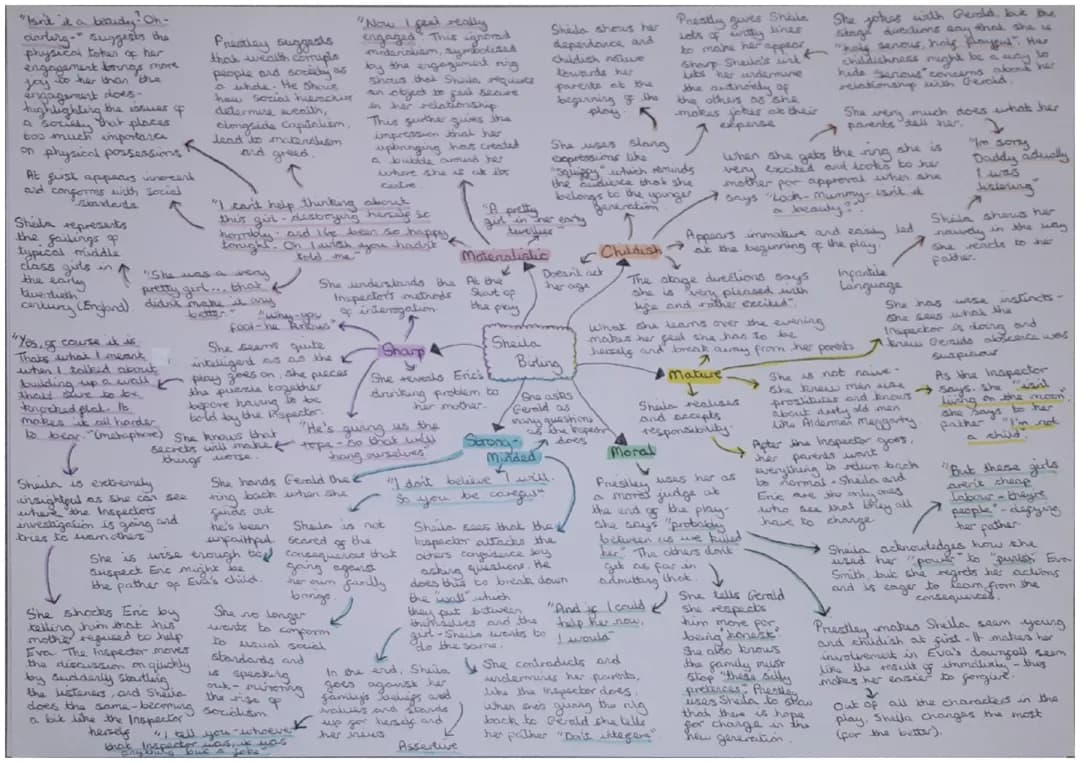 "Isn't it a beauty? Oh-
darling-" suggests the
physical token of her
engagement brings more
joy to her than the
engagement does-
highlighting the issues of
a society that places
too much importance
on physical possessions
At first appears innocent
and conforms with social
standards
Priestley suggests
that wealth corrupts
people and society as
a whole. He shows
how social hierarchies
determine wealth,
alongside capitalism,
lead to materialism
and greed.
"Now I feel really
engaged" This ignored
materialism, symbolised
by the engagement ring
shows that Sheila requires
an object to feel secure
in her relationship
This further gives the
impression that her
upbringing has created
a bubble around her
where she is at its
centre.
Sheila shows her
dependance and
childish nature
towards her
parents at the
beginning of the
play
Priestley gives Sheila
lots of witty lines
to make her appear
sharp. Sheila's wit
lets her undermine
the authority of
the others as she
makes jokes at their
expense
She jokes with Gerald, but the
stage directions say that she is
"half serious, half playful". Her
childishness might be a way to
hide "serious" concerns about her
relationship with Gerald.
She very much does what her
parents tell her.
"I'm sorry
Daddy actually
I was
listening"
She uses slang
expressions like
"squiffy" which reminds
the audience that she
belongs to the younger
generation.
When she gets the ring she is
very excited and looks to her
mother for approval when she
says "Look-Mummy-isn't it
a beauty?".
Sheila shows her
naivety in the way
she reacts to her
father.
Infantile
Language
Appears immature and easily led
at the beginning of the play.
The stage directions says
she is "very pleased with
life and rather excited".
"A pretty
girl in her early
twenties"
Materialistic
At the
Start of
the play
Childish
Doesn't act
her age
"I can't help thinking about
this girl- destroying herself so
horribly- and I've been so happy
tonight. Oh I wish you hadn't
told me"
Sheila represents
the failings of
typical middle
class girls in
the early
twentieth
century (England)
"She was a very
pretty girl... that
didn't make it any
better."
"Why-you
fool-he knows"
She understands the
Inspector's methods
of interrogation
Sheila
Birling
Sharp
She seems quite
intelligent as as the
play goes on, she pieces
the puzzle together
before having to be
told by the Inspector.
She reveals Eric's
drinking problem to
her mother.
"Yes, of course it is.
That's what I meant
when I talked about
building up a wall
that's sure to be
knocked flat. It
makes it all harder
to bear." (metaphore)
She knows that
secrets will make
things worse.
"He's giving us the
rope- so that we'll
hang ourselves"
Sheila is extremely
insightful as she can see
where the Inspectors
investigation is going and
tries to warn others
She is wise enough to
suspect Eric might be
the father of Eva's child.
She shocks Eric by
telling him that his
mother refused to help
Eva. The Inspector moves
the discussion on quickly
by suddenly startling
the listeners, and Sheila
does the same-becoming
a bit like the Inspector
herself
What she learns over the evening
makes her feel she has to be
herself and break away from her parents
Mature
She has wise instincts-
she sees what the
Inspector is doing and
knew Geralds absence was
suspicious
She is not naive-
she knew men use
prostitutes and knows
about dirty old men
like Alderman Meggarty
As the Inspector
says, she "isn't
living on the moon"
she says to her
father "I'm not
a child."
Sheila realises
and accepts
responsibility.
After the Inspector goes,
her parents want
everything to return back
to normal-Sheila and
Eric are the only ones
who see that they all
have to change.
Strong-
Minded
She asks
Gerald as
many questions
as the Inspector
does
She hands Gerald the
ring back when she
finds out
he's been
unfaithful
"I don't believe I will.
So you be careful"
Sheila is not
scared of the
consequences that
going against
her own family
brings.
Sheila sees that the
Inspector attacks the
others confidence by
asking questions. He
does this to break down
the "wall" which
they put between
themselves and the
girl-Sheila wants to
do the same.
She no longer
wants to conform
to usual social
standards and
is speaking
out- mirroring
the rise of
socialism
"I tell you-whoever
that Inspector was, it was
anything but a joke"
In the end, Sheila
goes against her
family's beliefs and
values and stands
up for herself and
her views
Assertive
She contradicts and
undermines her parents,
like the Inspector does.
when she's giving the ring
back to Gerald she tells
her father "Don't interfere"
Moral
Priestley uses her as
a moral judge at
the end of the play-
she says "probably
between us we killed
her." The others don't
get as far in
admitting that.
"And if I could
help her now,
I would"
She tells Gerald
she respects
him more for
being honest.
She also knows
the family must
stop "these silly
pretences". Priestley
uses Sheila to show
that there is hope
for change in the
new generation.
"But these girls
aren't cheap
labour-they're
people"- defying
her father
Sheila acknowledges how she
used her "power" to "punish" Eva
Smith but she regrets her actions
and is eager to learn from the
consequences.
Priestley makes Sheila seem young
and childish at first-It makes her
involvement in Eva's downfall seem
like the result of immaturity- this
makes her easier to forgive.
Out of all the characters in the
play, Sheila changes the most
(for the better).